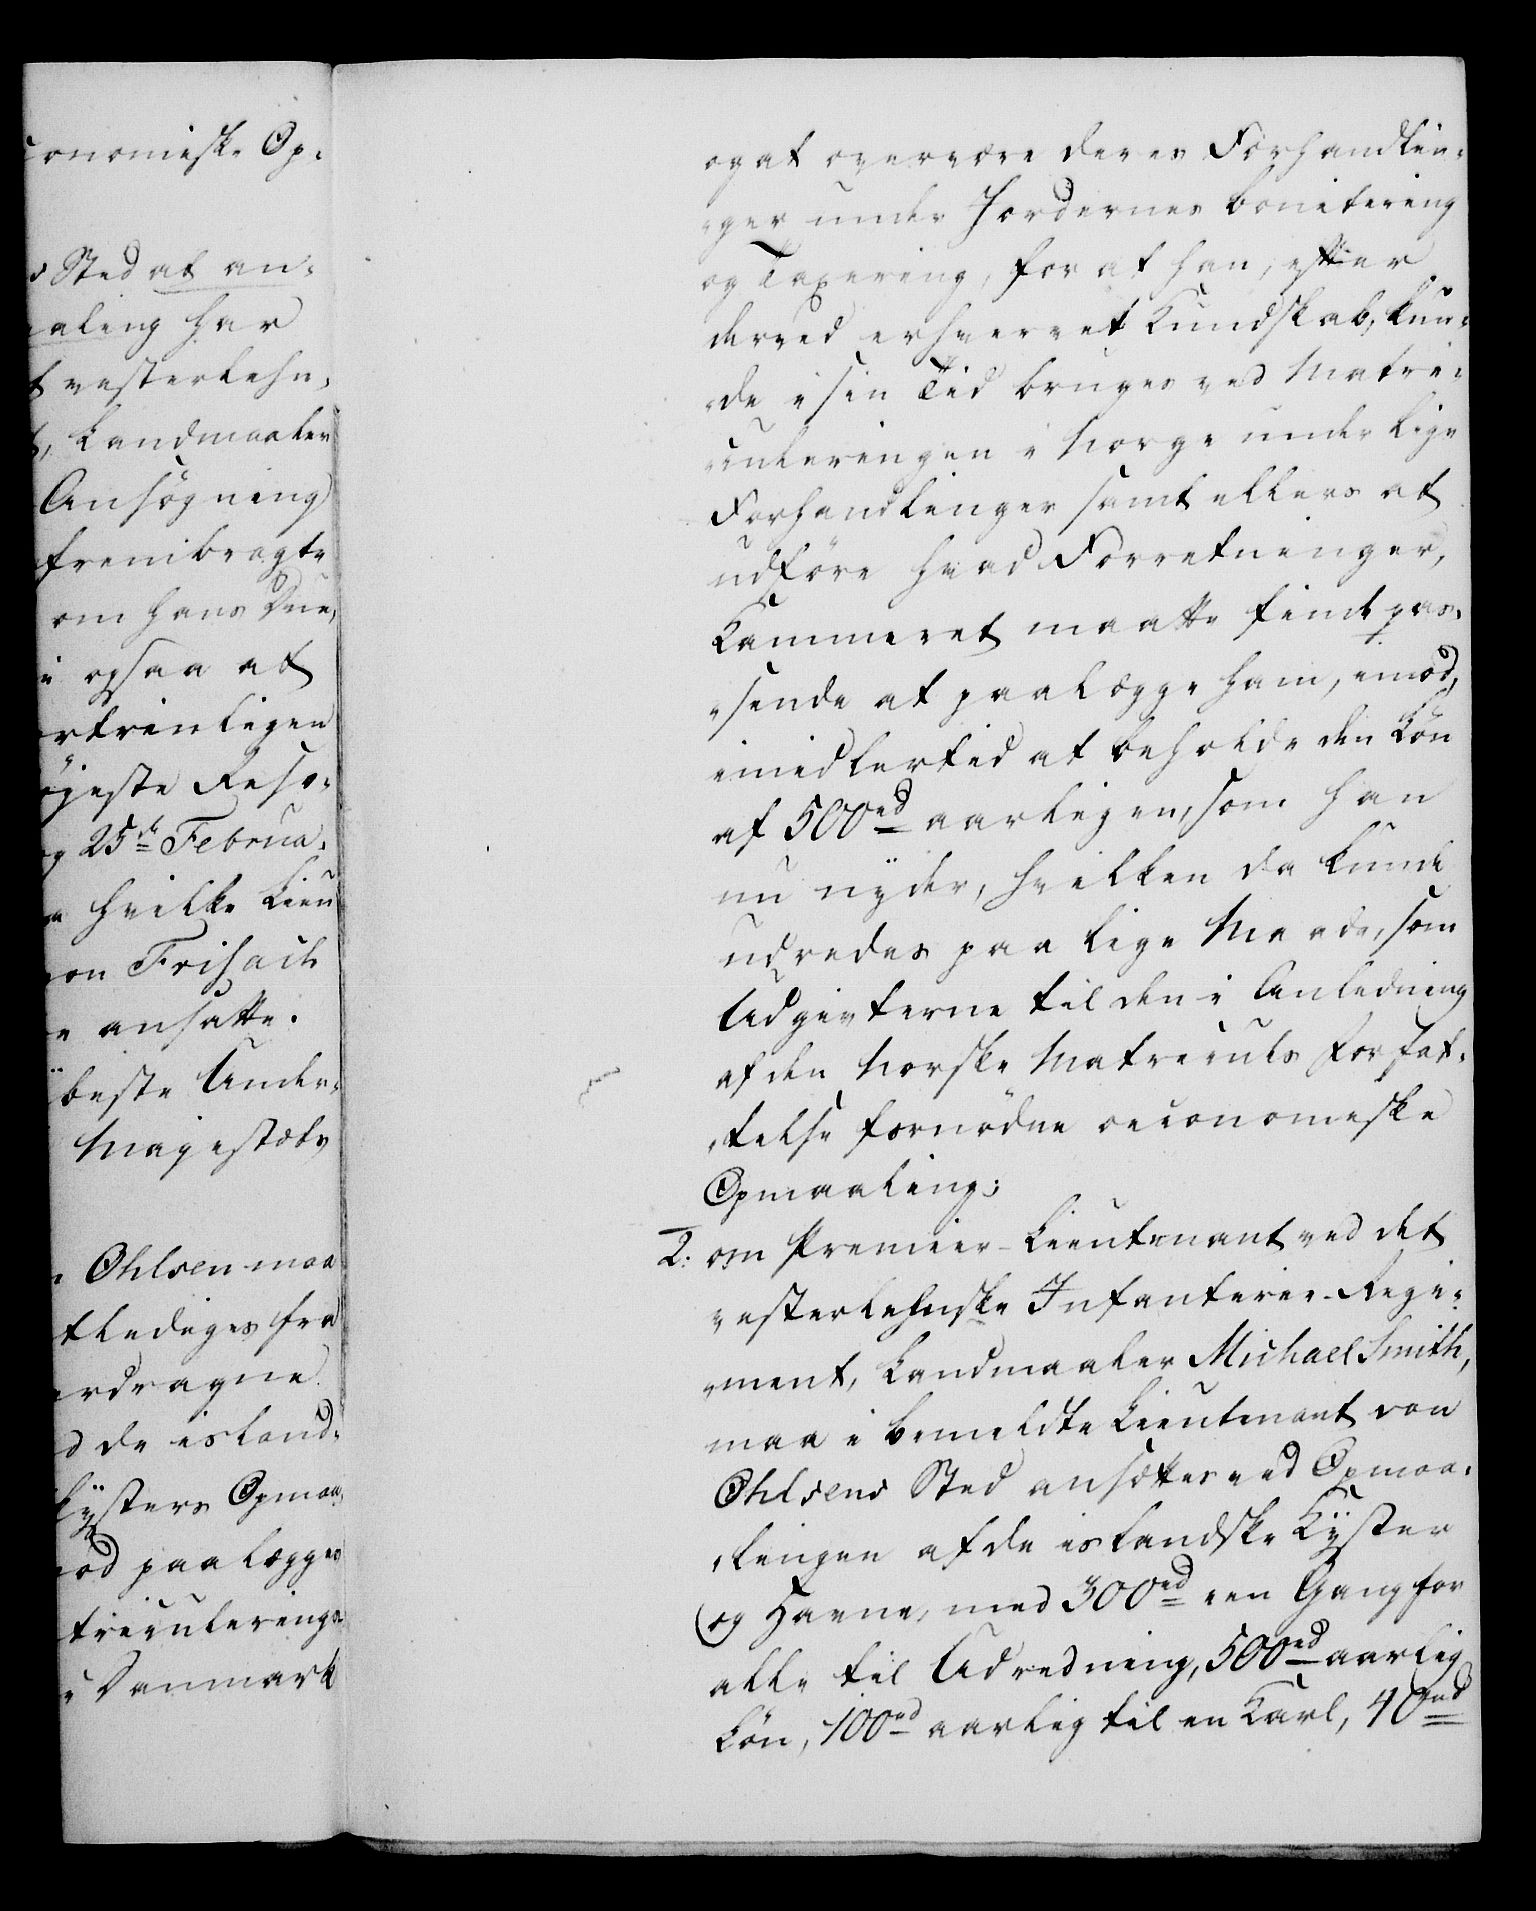 conomiske Op-
s Sted at an-
aling har
t vesterlehn-
t, Landmaaler
Ansøgning
frembragte
om hans Due-
i ogsaa at
ortrinligen
øjeste Reso-
og 25de Februa-
e hvilke Lieu
von Frisach
e ansatte.
beste Under-
Majestæts
n Ohlsen maa
tlediges fra
erdragne
d de island-
Kÿsters Opmaa-
od paalægges
triculerings-
i Danmark
og at overvære deres Forhandlin-
-ger under Jordernes bonitering
og Taxering, for at han, efter
derved erhvervet Kundskab, kun-
-de i sin Tid bruges ved Matri-
-culeringen i Norge under lige
Forhandlinger samt ellers at
udføre hvad Forretninger,
Kammeret maatte finde pas-
-sende at paalægge ham, imod,
imidlertid at beholde den Løn
af 500 rd aarligen, som han
nu nÿder, hvilken da kunde
udredes paa lige Maade, som
Udgivterne til den i Anledning
af den Norske Matriculs Forfat-
-telse fornødne oeconomiske
Opmaaling;
2: om Premier-Lieutenant ved det
vesterlehnske Infanterie-Regi-
-ment, Landmaaler Michael Smith,
maa i bemeldte Lieutenant von
Ohlsens Sted ansættes ved Opmaa-
-lingen af de islandske Kÿster
og Havne, med 300 rd een Gang for
alle til Udredning, 500 rd aarlig
Løn, 100 rd aarlig til en Karl, 40 rd